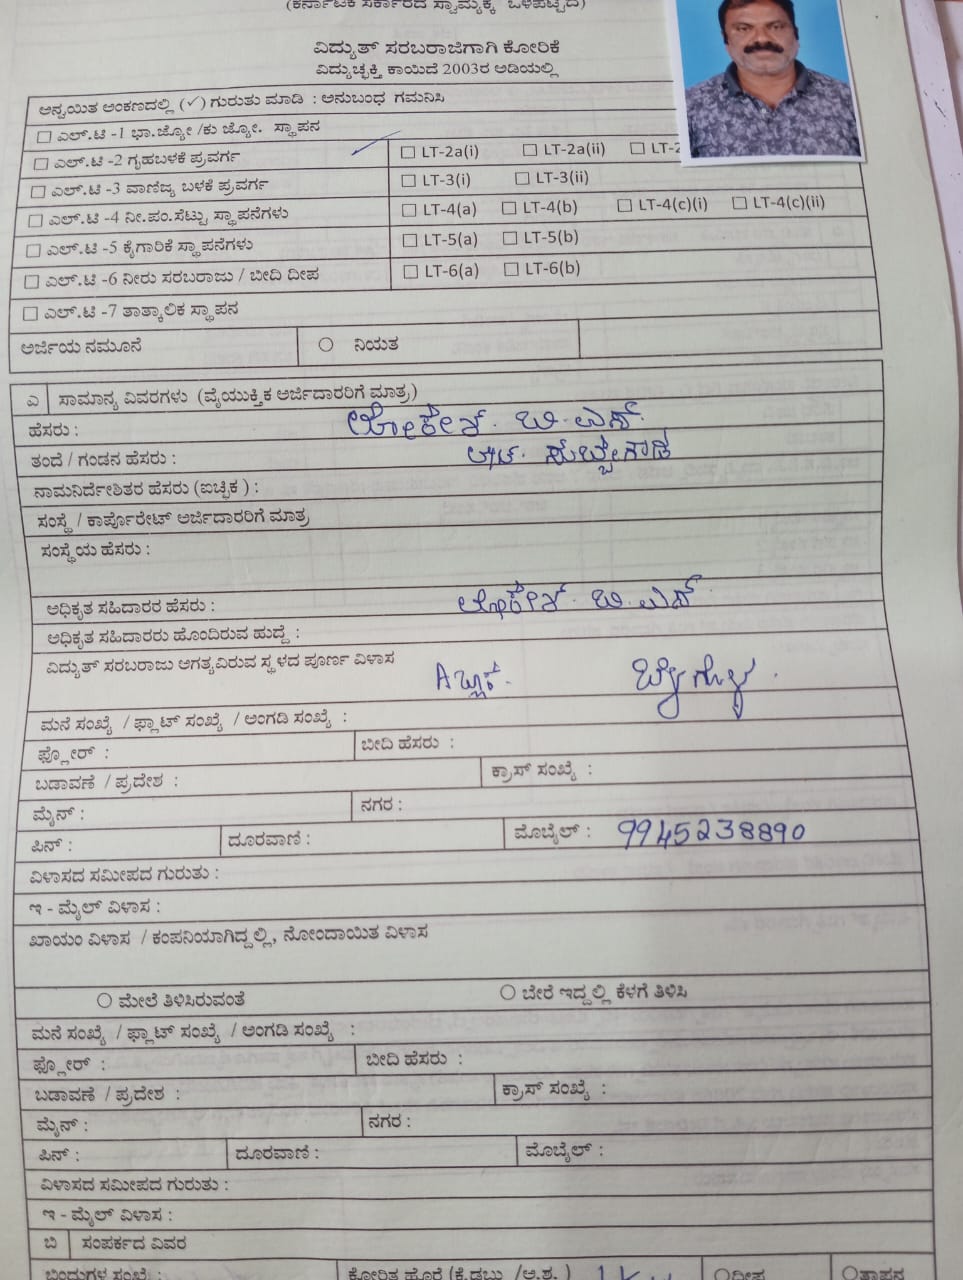 (ಕರ್ನಾಟಕ ಸರ್ಕಾರದ ಸ್ವಾಮ್ಯಕ್ಕೆ ಒಳಪಟ್ಟಿದೆ)
ವಿದ್ಯುತ್ ಸರಬರಾಜಿಗಾಗಿ ಕೋರಿಕೆ
ವಿದ್ಯುಚ್ಛಕ್ತಿ ಕಾಯಿದೆ 2003ರ ಅಡಿಯಲ್ಲಿ
ಅನ್ವಯಿತ ಅಂಕಣದಲ್ಲಿ (✓) ಗುರುತು ಮಾಡಿ : ಅನುಬಂಧ ಗಮನಿಸಿ
☐ ಎಲ್.ಟಿ -1 ಭಾ.ಜ್ಯೋ /ಕು ಜ್ಯೋ. ಸ್ಥಾಪನ
☐ ಎಲ್.ಟಿ -2 ಗೃಹಬಳಕೆ ಪ್ರವರ್ಗ ☐ LT-2a(i) ☐ LT-2a(ii) ☐ LT-2
☐ ಎಲ್.ಟಿ -3 ವಾಣಿಜ್ಯ ಬಳಕೆ ಪ್ರವರ್ಗ ☐ LT-3(i) ☐ LT-3(ii)
☐ ಎಲ್.ಟಿ -4 ನೀ.ಪಂ.ಸೆಟ್ಟು ಸ್ಥಾಪನೆಗಳು ☐ LT-4(a) ☐ LT-4(b) ☐ LT-4(c)(i) ☐ LT-4(c)(ii)
☐ ಎಲ್.ಟಿ -5 ಕೈಗಾರಿಕೆ ಸ್ಥಾಪನೆಗಳು ☐ LT-5(a) ☐ LT-5(b)
☐ ಎಲ್.ಟಿ -6 ನೀರು ಸರಬರಾಜು / ಬೀದಿ ದೀಪ ☐ LT-6(a) ☐ LT-6(b)
☐ ಎಲ್.ಟಿ -7 ತಾತ್ಕಾಲಿಕ ಸ್ಥಾಪನ
ಅರ್ಜಿಯ ನಮೂನೆ ○ ನಿಯತ
ಎ ಸಾಮಾನ್ಯ ವಿವರಗಳು (ವೈಯುಕ್ತಿಕ ಅರ್ಜಿದಾರರಿಗೆ ಮಾತ್ರ)
ಹೆಸರು : ಲೋಕೇಶ್. ಬಿ.ಎಸ್.
ತಂದೆ / ಗಂಡನ ಹೆಸರು : ಸುಬ್ಬೇಗೌಡ
ನಾಮನಿರ್ದೇಶಿತರ ಹೆಸರು (ಐಚ್ಛಿಕ ) :
ಸಂಸ್ಥೆ / ಕಾರ್ಪೊರೇಟ್ ಅರ್ಜಿದಾರರಿಗೆ ಮಾತ್ರ
ಸಂಸ್ಥೆಯ ಹೆಸರು :
ಅಧಿಕೃತ ಸಹಿದಾರರ ಹೆಸರು : ಲೋಕೇಶ್. ಬಿ.ಎಸ್
ಅಧಿಕೃತ ಸಹಿದಾರರು ಹೊಂದಿರುವ ಹುದ್ದೆ :
ವಿದ್ಯುತ್ ಸರಬರಾಜು ಅಗತ್ಯವಿರುವ ಸ್ಥಳದ ಪೂರ್ಣ ವಿಳಾಸ
A ಬ್ಲಾಕ್.
ಮನೆ ಸಂಖ್ಯೆ / ಫ್ಲಾಟ್ ಸಂಖ್ಯೆ / ಅಂಗಡಿ ಸಂಖ್ಯೆ :
ಫ್ಲೋರ್ : ಬೀದಿ ಹೆಸರು :
ಬಡಾವಣೆ / ಪ್ರದೇಶ : ಕ್ರಾಸ್ ಸಂಖ್ಯೆ :
ಮೈನ್ : ನಗರ :
ಪಿನ್ : ದೂರವಾಣಿ : ಮೊಬೈಲ್ : 9945238890
ವಿಳಾಸದ ಸಮೀಪದ ಗುರುತು :
ಇ - ಮೈಲ್ ವಿಳಾಸ :
ಖಾಯಂ ವಿಳಾಸ / ಕಂಪನಿಯಾಗಿದ್ದಲ್ಲಿ, ನೋಂದಾಯಿತ ವಿಳಾಸ
○ ಮೇಲೆ ತಿಳಿಸಿರುವಂತೆ ○ ಬೇರೆ ಇದ್ದಲ್ಲಿ ಕೆಳಗೆ ತಿಳಿಸಿ
ಮನೆ ಸಂಖ್ಯೆ / ಫ್ಲಾಟ್ ಸಂಖ್ಯೆ / ಅಂಗಡಿ ಸಂಖ್ಯೆ :
ಫ್ಲೋರ್ : ಬೀದಿ ಹೆಸರು :
ಬಡಾವಣೆ / ಪ್ರದೇಶ : ಕ್ರಾಸ್ ಸಂಖ್ಯೆ :
ಮೈನ್ : ನಗರ :
ಪಿನ್ : ದೂರವಾಣಿ : ಮೊಬೈಲ್ :
ವಿಳಾಸದ ಸಮೀಪದ ಗುರುತು :
ಇ - ಮೈಲ್ ವಿಳಾಸ :
ಬಿ ಸಂಪರ್ಕದ ವಿವರ
ಬಿಂದುಗಳ ಸಂಖ್ಯೆ : ಕೋರಿತ ಹೊರೆ (ಕೆ.ಡಬ್ಲು /ಅ.ಶ. ) ○ದೀಪ ○ತಾಪನ